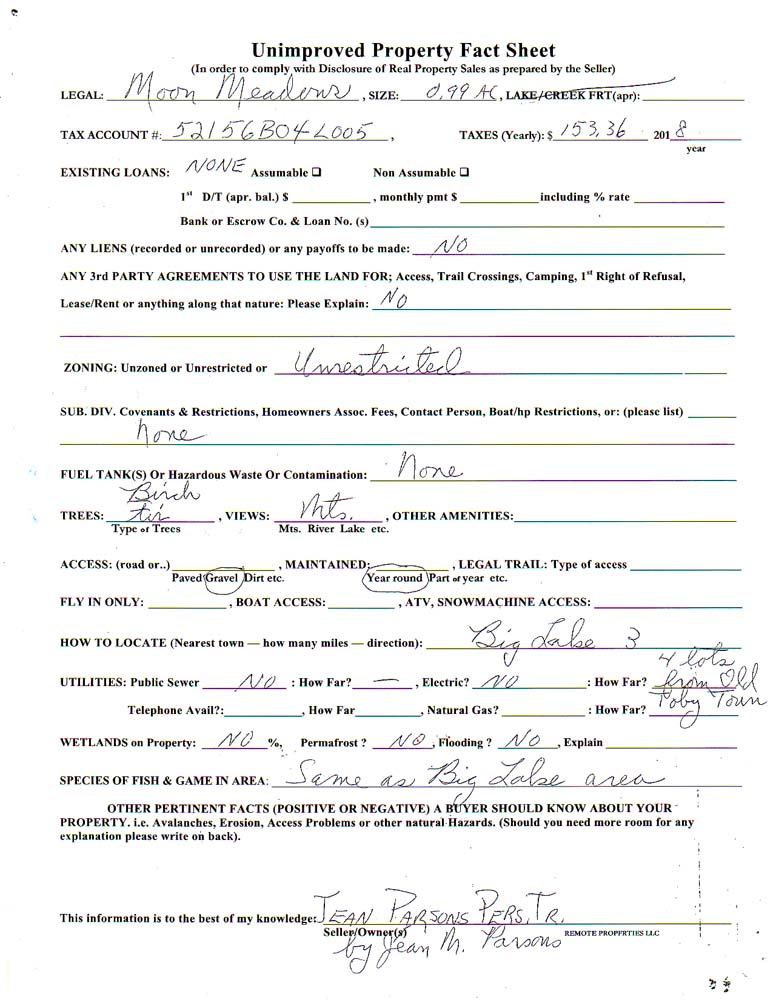 Unimproved Property Fact Sheet
(In order to comply with Disclosure of Real Property Sales as prepared by the Seller)
LEGAL: Moon Meadows, SIZE: 0.99 AC, LAKE/CREEK FRT(apr):
TAX ACCOUNT #: 52156B04L005, TAXES (Yearly): $ 153.36 2018
year
EXISTING LOANS: NONE Assumable ☐ Non Assumable ☐
1st D/T (apr. bal.) $ , monthly pmt $ including % rate
Bank or Escrow Co. & Loan No. (s)
ANY LIENS (recorded or unrecorded) or any payoffs to be made: NO
ANY 3rd PARTY AGREEMENTS TO USE THE LAND FOR; Access, Trail Crossings, Camping, 1st Right of Refusal,
Lease/Rent or anything along that nature: Please Explain: NO
ZONING: Unzoned or Unrestricted or Unrestricted
SUB. DIV. Covenants & Restrictions, Homeowners Assoc. Fees, Contact Person, Boat/hp Restrictions, or: (please list)
none
FUEL TANK(S) Or Hazardous Waste Or Contamination: None
Birch
TREES: fir, VIEWS: Mts., OTHER AMENITIES:
Type of Trees Mts. River Lake etc.
ACCESS: (road or..) , MAINTAINED: , LEGAL TRAIL: Type of access
Paved Gravel Dirt etc. Year round Part of year etc.
FLY IN ONLY: , BOAT ACCESS: , ATV, SNOWMACHINE ACCESS:
HOW TO LOCATE (Nearest town — how many miles — direction): Big Lake 3
4 lots
UTILITIES: Public Sewer NO : How Far? — , Electric? NO : How Far? from Old
Telephone Avail?: , How Far , Natural Gas? : How Far? Town
WETLANDS on Property: NO %, Permafrost ? NO, Flooding ? NO, Explain
SPECIES OF FISH & GAME IN AREA: Same as Big Lake area
OTHER PERTINENT FACTS (POSITIVE OR NEGATIVE) A BUYER SHOULD KNOW ABOUT YOUR
PROPERTY. i.e. Avalanches, Erosion, Access Problems or other natural Hazards. (Should you need more room for any
explanation please write on back).
This information is to the best of my knowledge: JEAN PARSONS PERS. TR.
Seller/Owner(s) REMOTE PROPERTIES LLC
by Jean M. Parsons